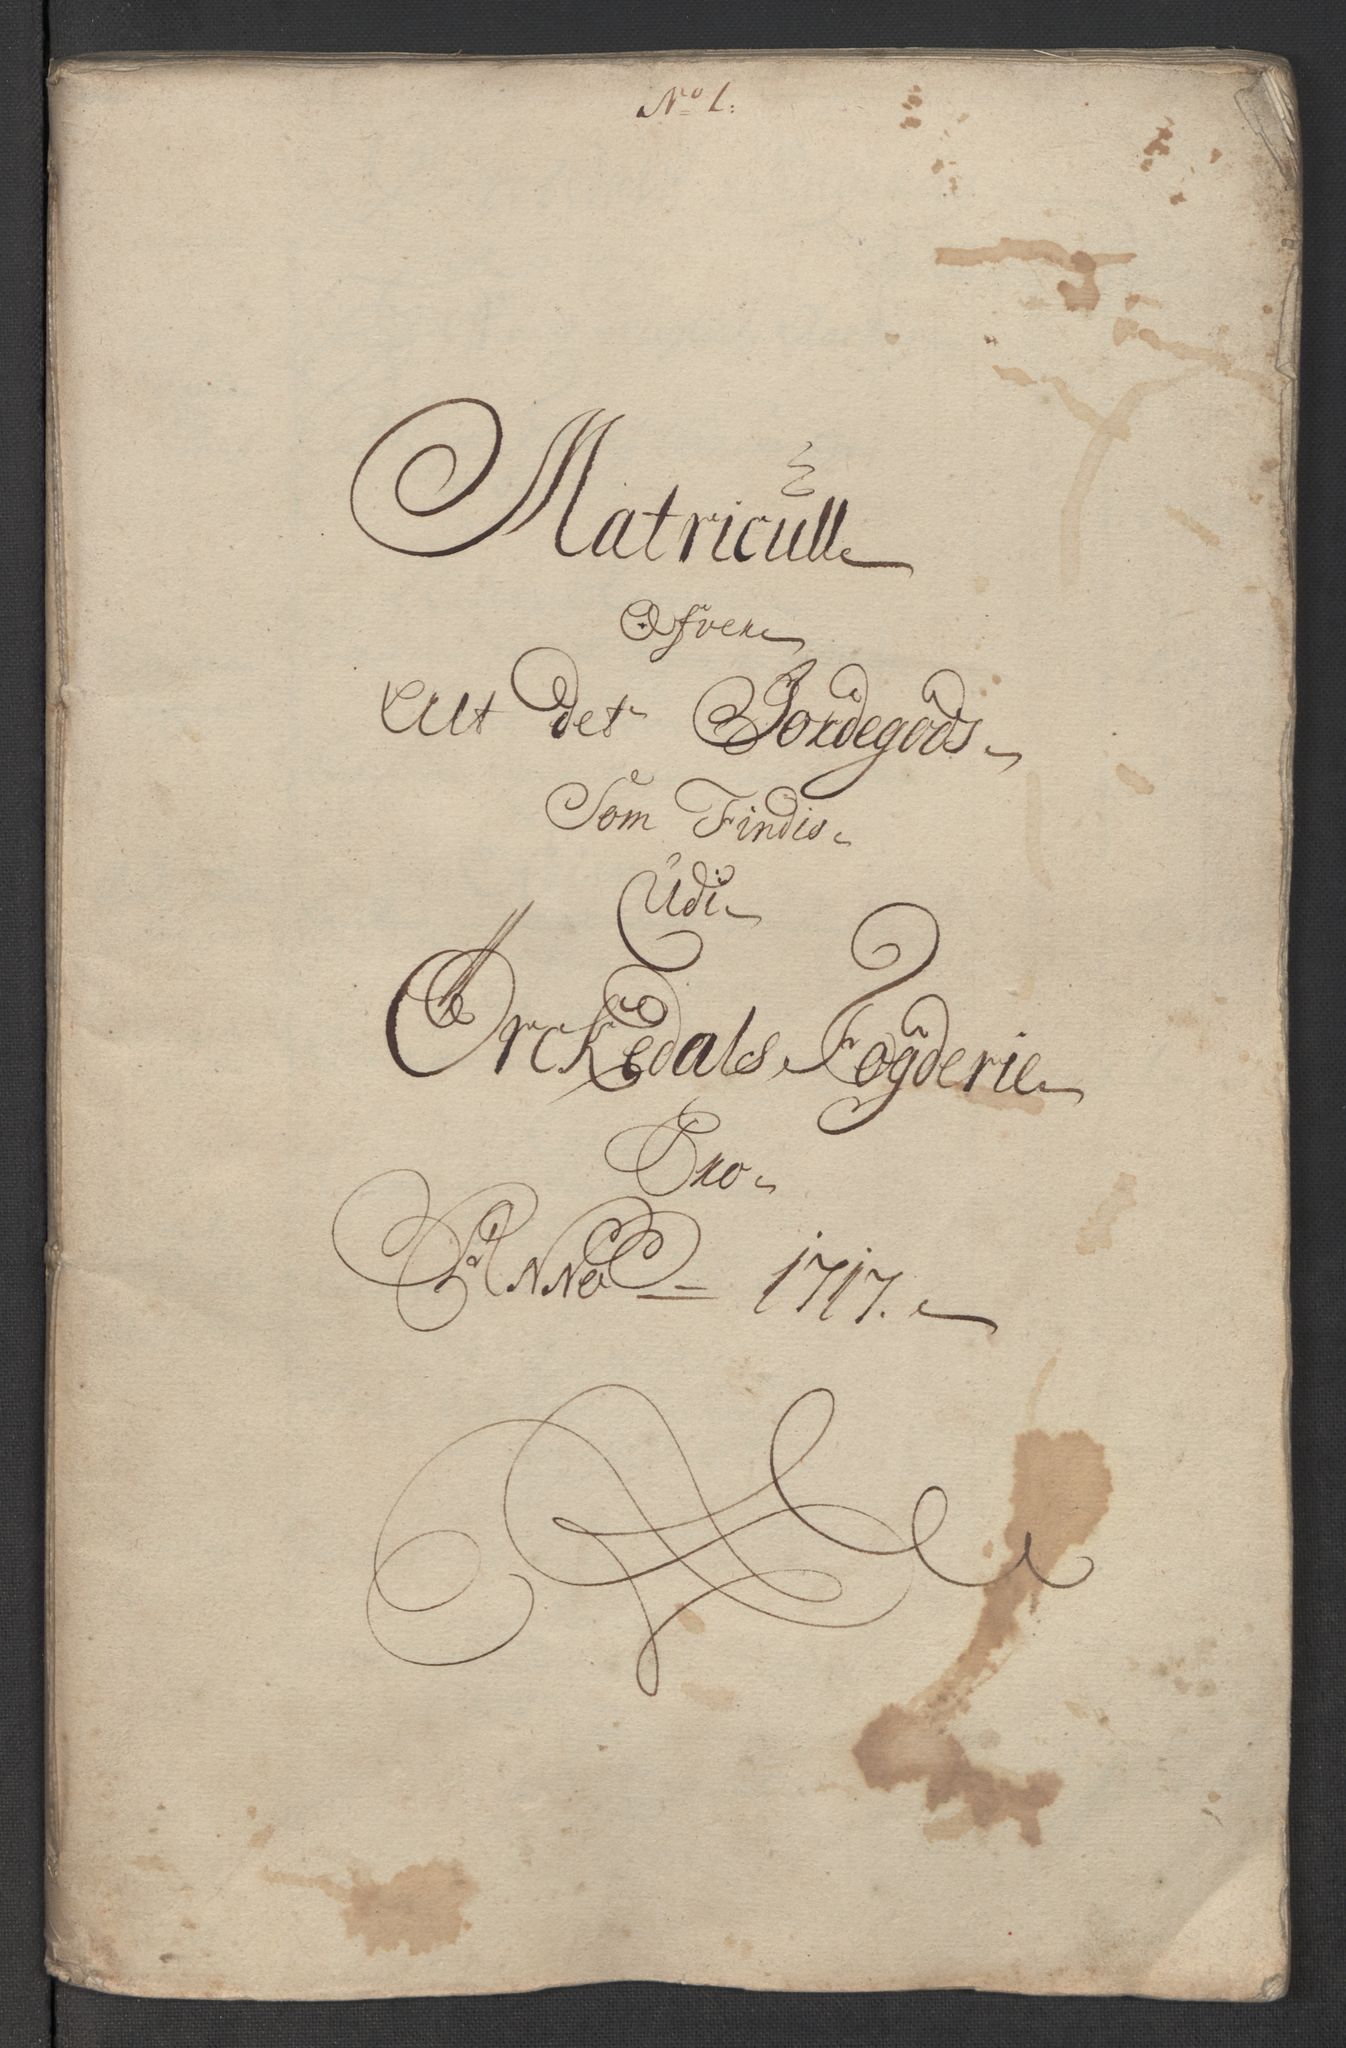 No 1.
Matricull
Ofver
Alt det Jordegods
Som Findis
Udi
Orckedals Fogderie
Pro
Anno 1717.